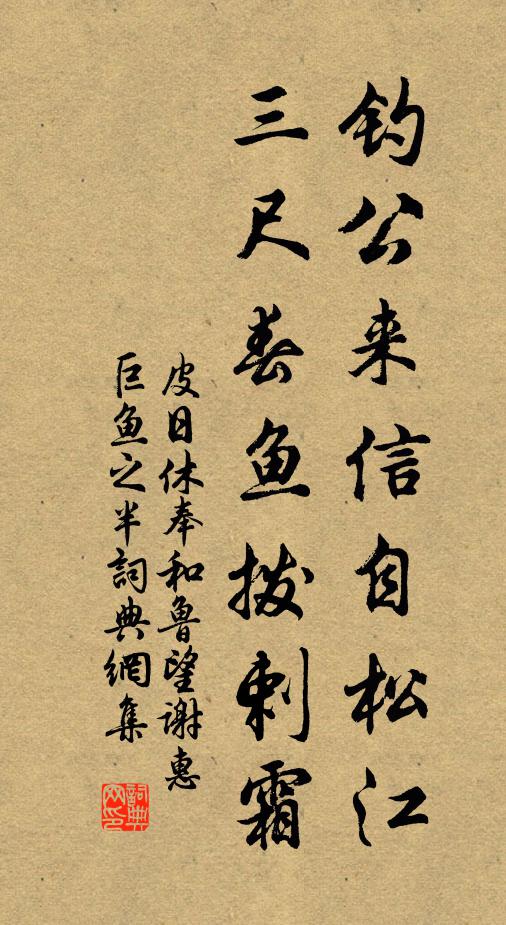 钓公来信自松江
三尺春鱼拨剌霜
皮日休奉和鲁望谢惠
巨鱼之半詞典網集
詞典网印